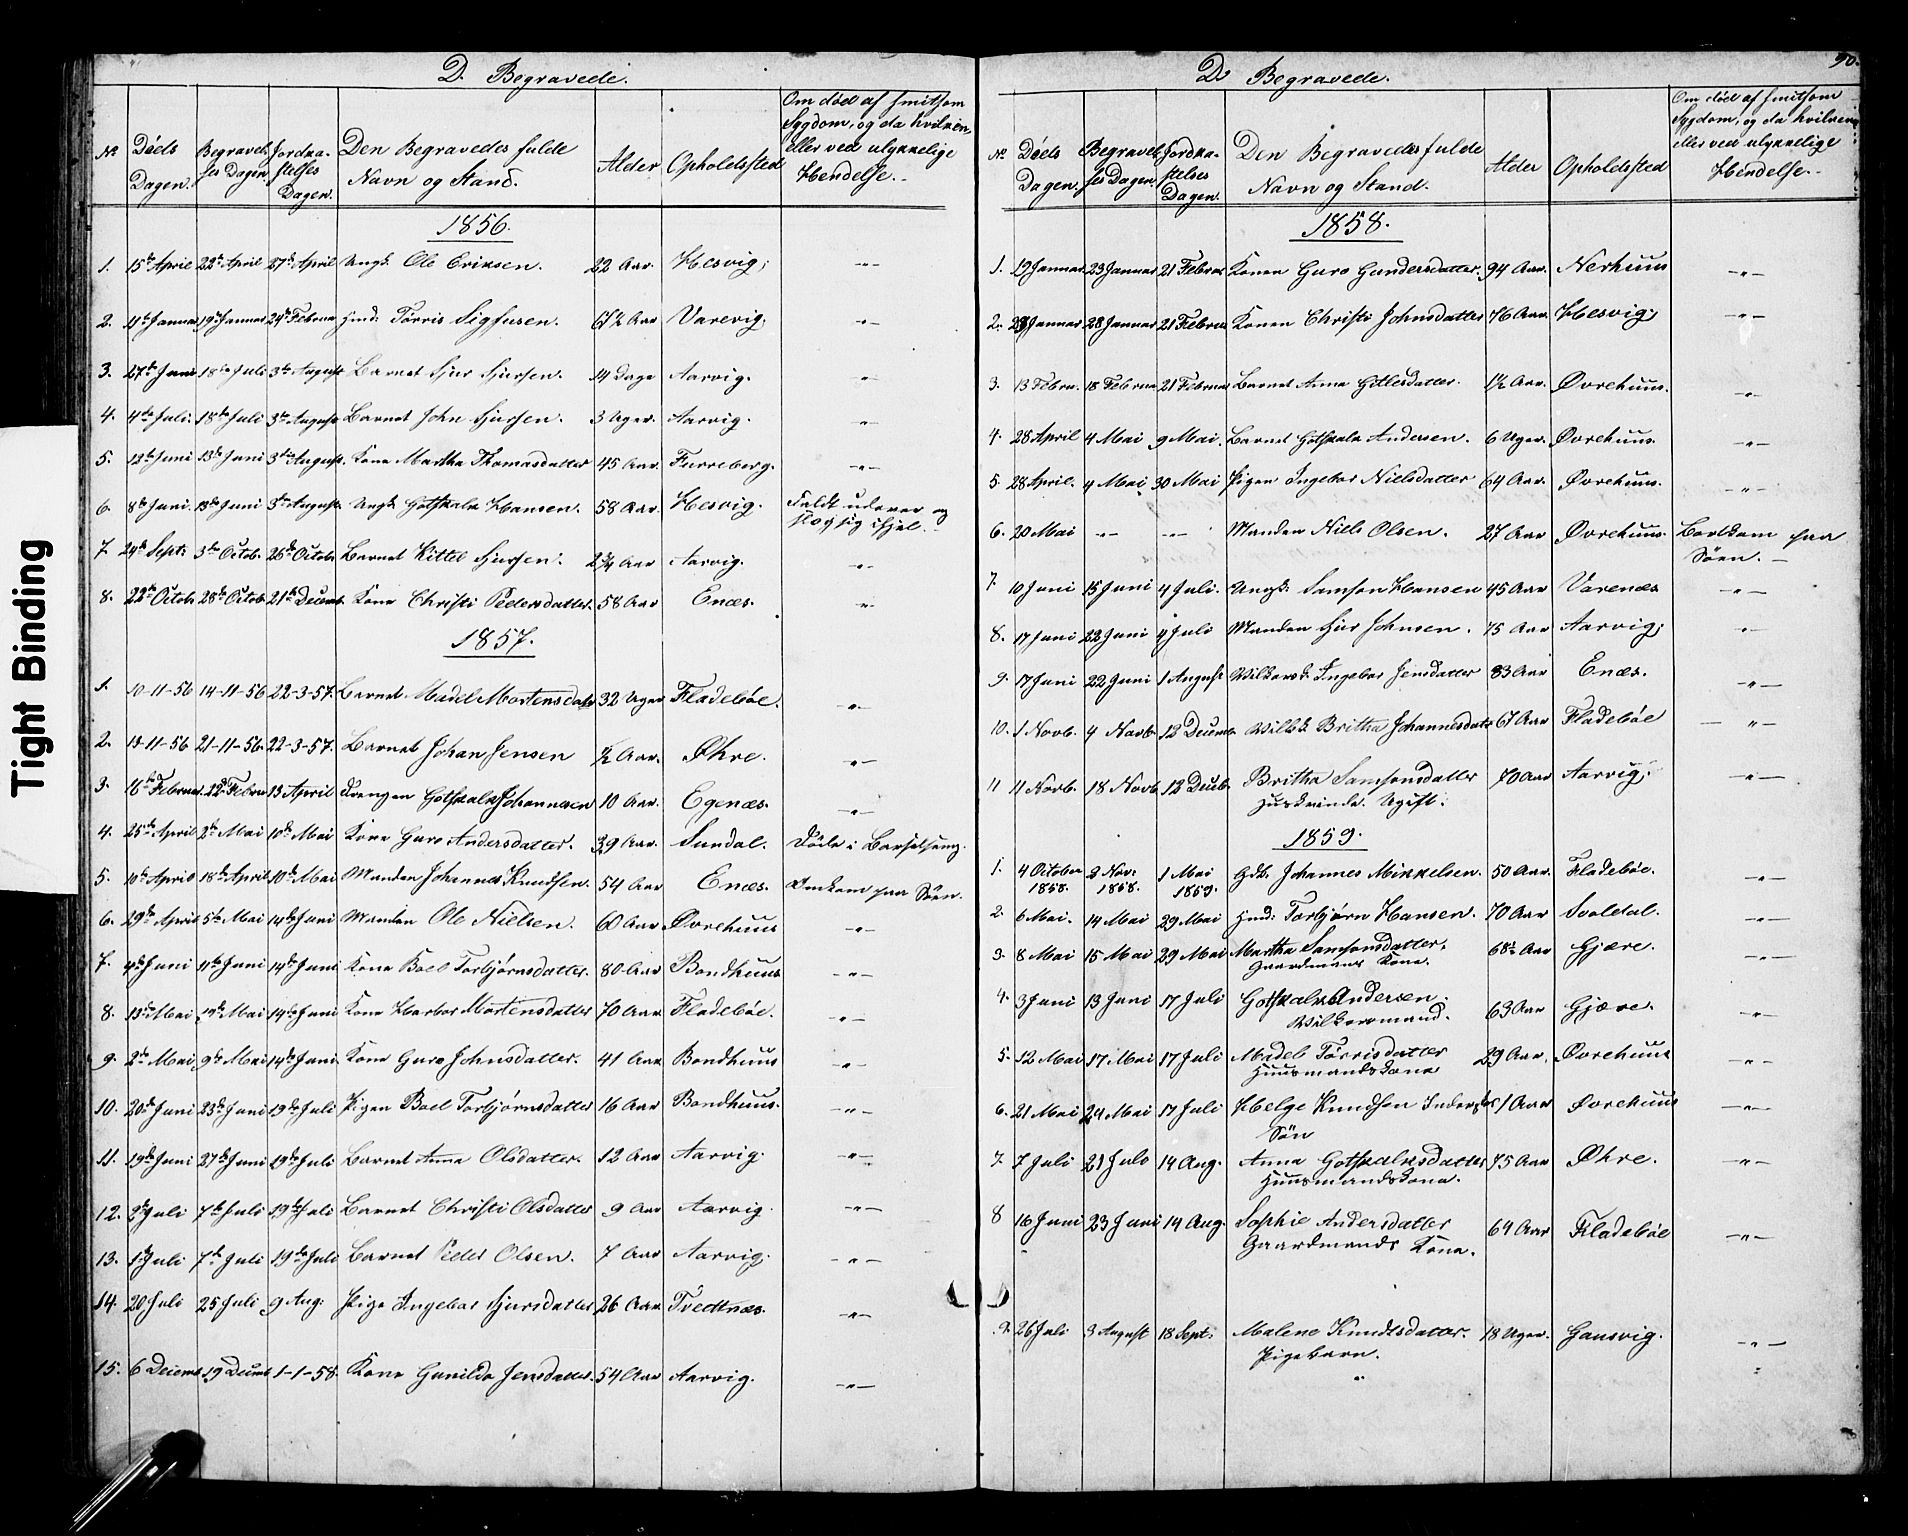 D. Begravede.
No Døds Dagen. Begravelses Dagen. Jordkastelses Dagen. Den Begravedes fulde Navn og Stand. Alder Opholdssted Om død af smitsom Sygdom, og da hvilken, eller ved ulykkelige Hendelse.
1856.
1. 15de April 22de April 27de April Ungk. Ole Eriksen. 22 Aar. Hesvig;
2. 11te Januar 19de Januar 24de Februar Hmd. Tørris Sigfusen. 61½ Aar Varevig.
3. 27de Juni 18de Juli 3de August Barnet Sjur Sjursen. 14 Dage Aarvig.
4. 4de Juli. 18de Juli 3de August Barnet John Sjursen. 3 Uger. Aarvig.
5. 12te Juni 13de Juni 3de August. Kone Martha Thomasdatter 45 Aar. Furreberg.
6. 8de Juni. 13de Juni 3de August Ungk. Gotskalk Hansen. 58 Aar. Hesvig. Faldt udover og slog sig ihjel.
7. 24de Septr 3de Octob. 26de Octob. Barnet Kittel Sjursen. 2¾ Aar Aarvig.
8. 22de Octob. 28de Octob. 21de Decemb. Kone Christi Pedersdatter. 58 Aar Enæs.
1857.
1. 10-11-56 14-11-56 22-3-57. Barnet Madel Mortensdatr 32 Uger Fladebøe.
2. 13-11-56 21-11-56. 22-3-57. Barnet Johan Jensen ½ Aar. Øhre.
3. 16de Februar 22de Februar 13 April Drengen Gotskalk Johannesen 10 Aar. Egenæs.
4. 25de April 2de Mai 10de Mai Kone Guro Andersdatter. 39 Aar. Sundal. Døde i Barselseng.
5. 10de April 18de April 10de Mai Manden Johannes Knudsen. 54 Aar Enæs. Omkom paa Søen.
6. 29de April 5te Mai 14de Juni Manden Ole Nielsen. 60 Aar Øvrehuus
7. 4de Juni 11te Juni 14de Juni Kone Boel Torbjørnsdatter. 80 Aar Bondhuus
8. 13de Mai 19de Mai 14de Juni Kone Herbor Mortensdatter 70 Aar Fladebøe.
9. 2de Mai 9de Mai 14de Juni Kone Guro Johnsdatter. 41 Aar Bondhuus
10. 20de Juni 23de Juni 19de Juli Pigen Boel Torbjørnsdatter 16 Aar Bondhuus.
11. 19de Juni 27de Juni 19de Juli Barnet Anna Olsdatter. 12 Aar Aarvig.
12. 2de Juli 7de Juli 19de Juli Barnet Christi Olsdatter 9 Aar Aarvig.
13. 1de Juli 7de Juli 19de Juli Barnet Peder Olsen. 7 Aar Aarvig.
14. 20 Juli 25 Juli 9 Aug. Pige Ingebor Sjursdatter 26 Aar Tvedtnæs.
15. 6 Decemb 19 Decemb 1-1-58. Kone Gunilda Jensdatter. 54 Aar Aarvig.
D. Begravede.
90.
No. Døds Dagen. Begravelses Dagen. Jordkastelses Dagen. Den Begravedes fulde Navn og Stand. Alder Opholdssted Om død af smitsom Sygdom, og da hvilken, eller ved ulykkelige Hendelse.
1858.
1. 19 Januar 23 Januar 21 Februar Konen Guro Gundersdatter. 94 Aar. Nerhuus
2. 23 Januar 28 Januar 21 Februar Konen Christi Johnsdatter 76 Aar. Hesvig;
3. 13 Febru. 18 Februar 21 Februar Barnet Anna Gitlesdatter. 1½ Aar. Øvrehuus.
4. 28 April 4 Mai 9 Mai. Barnet Gotskalk Andersen. 6 Uger. Øvrehuus.
5. 28 April. 4 Mai 30 Mai Pigen Ingebor Nielsdatter 64 Aar. Øvrehuus.
6. 20 Mai Manden Niels Olsen. 27 Aar Øvrehuus. Bortkom paa Søen.
7. 10 Juni 15 Juni 4 Juli. Ungk. Samson Hansen 45 Aar Varenæs
8. 17 Juni 22 Juni 4 Juli Manden Sjur Johnsen. 75 Aar Aarvig;
9. 17 Juni 22 Juni 1 August Wilkaarsk. Ingebor Jensdatter 83 Aar Enæs.
10. 1 Novb. 4 Novb. 12 Decemb. Wilksk. Britha Johannesdatr 67 Aar Fladebøe
11 11 Novb. 18 Novb 12 Decb. Britha Samsonsdatter 70 Aar Aarvig;
Huuskvinde Ugift.
1859.
1. 4 October 1858. 2 Nov: 1858. 1 Mai 1859. Gdb. Johannes Mikkelsen. 50 Aar. Fladebøe.
2. 6 Mai. 14 Mai 29 Mai Hmd: Torbjørn Hansen. 70 Aar Svoldal.
3. 8 Mai 15 Mai 29 Mai Martha Samsonsdatter. 68½ Aar Gjære.
Gaardmans Kone.
4. 3 Juni 13 Juni 17 Juli Gotskalk Andersen. 63 Aar Gjære.
Wilkaarmand.
5. 12 Mai 17 Mai 17 Juli Madel Tørrisdatter 29 Aar. Øvrehuus
Huusmandskone
6. 21 Mai 24 Mai 17 Juli Helge Knudsen Inderstes 1 Aar Øvrehuus
Søn
7. 7 Juli 21 Juli 14 Aug. Anna Gotskalksdatter 75 Aar Øhre.
Huusmandskone.
8 16 Juni 23 Juni 14 Aug. Sophie Andersdatter 64 Aar Fladebøe
Gaardmands Kone.
9. 26 Juli 3 August 18 Sept. Malene Knudsdatter. 18 Uger. Gausvig.
Pigebarn.
Tight Binding